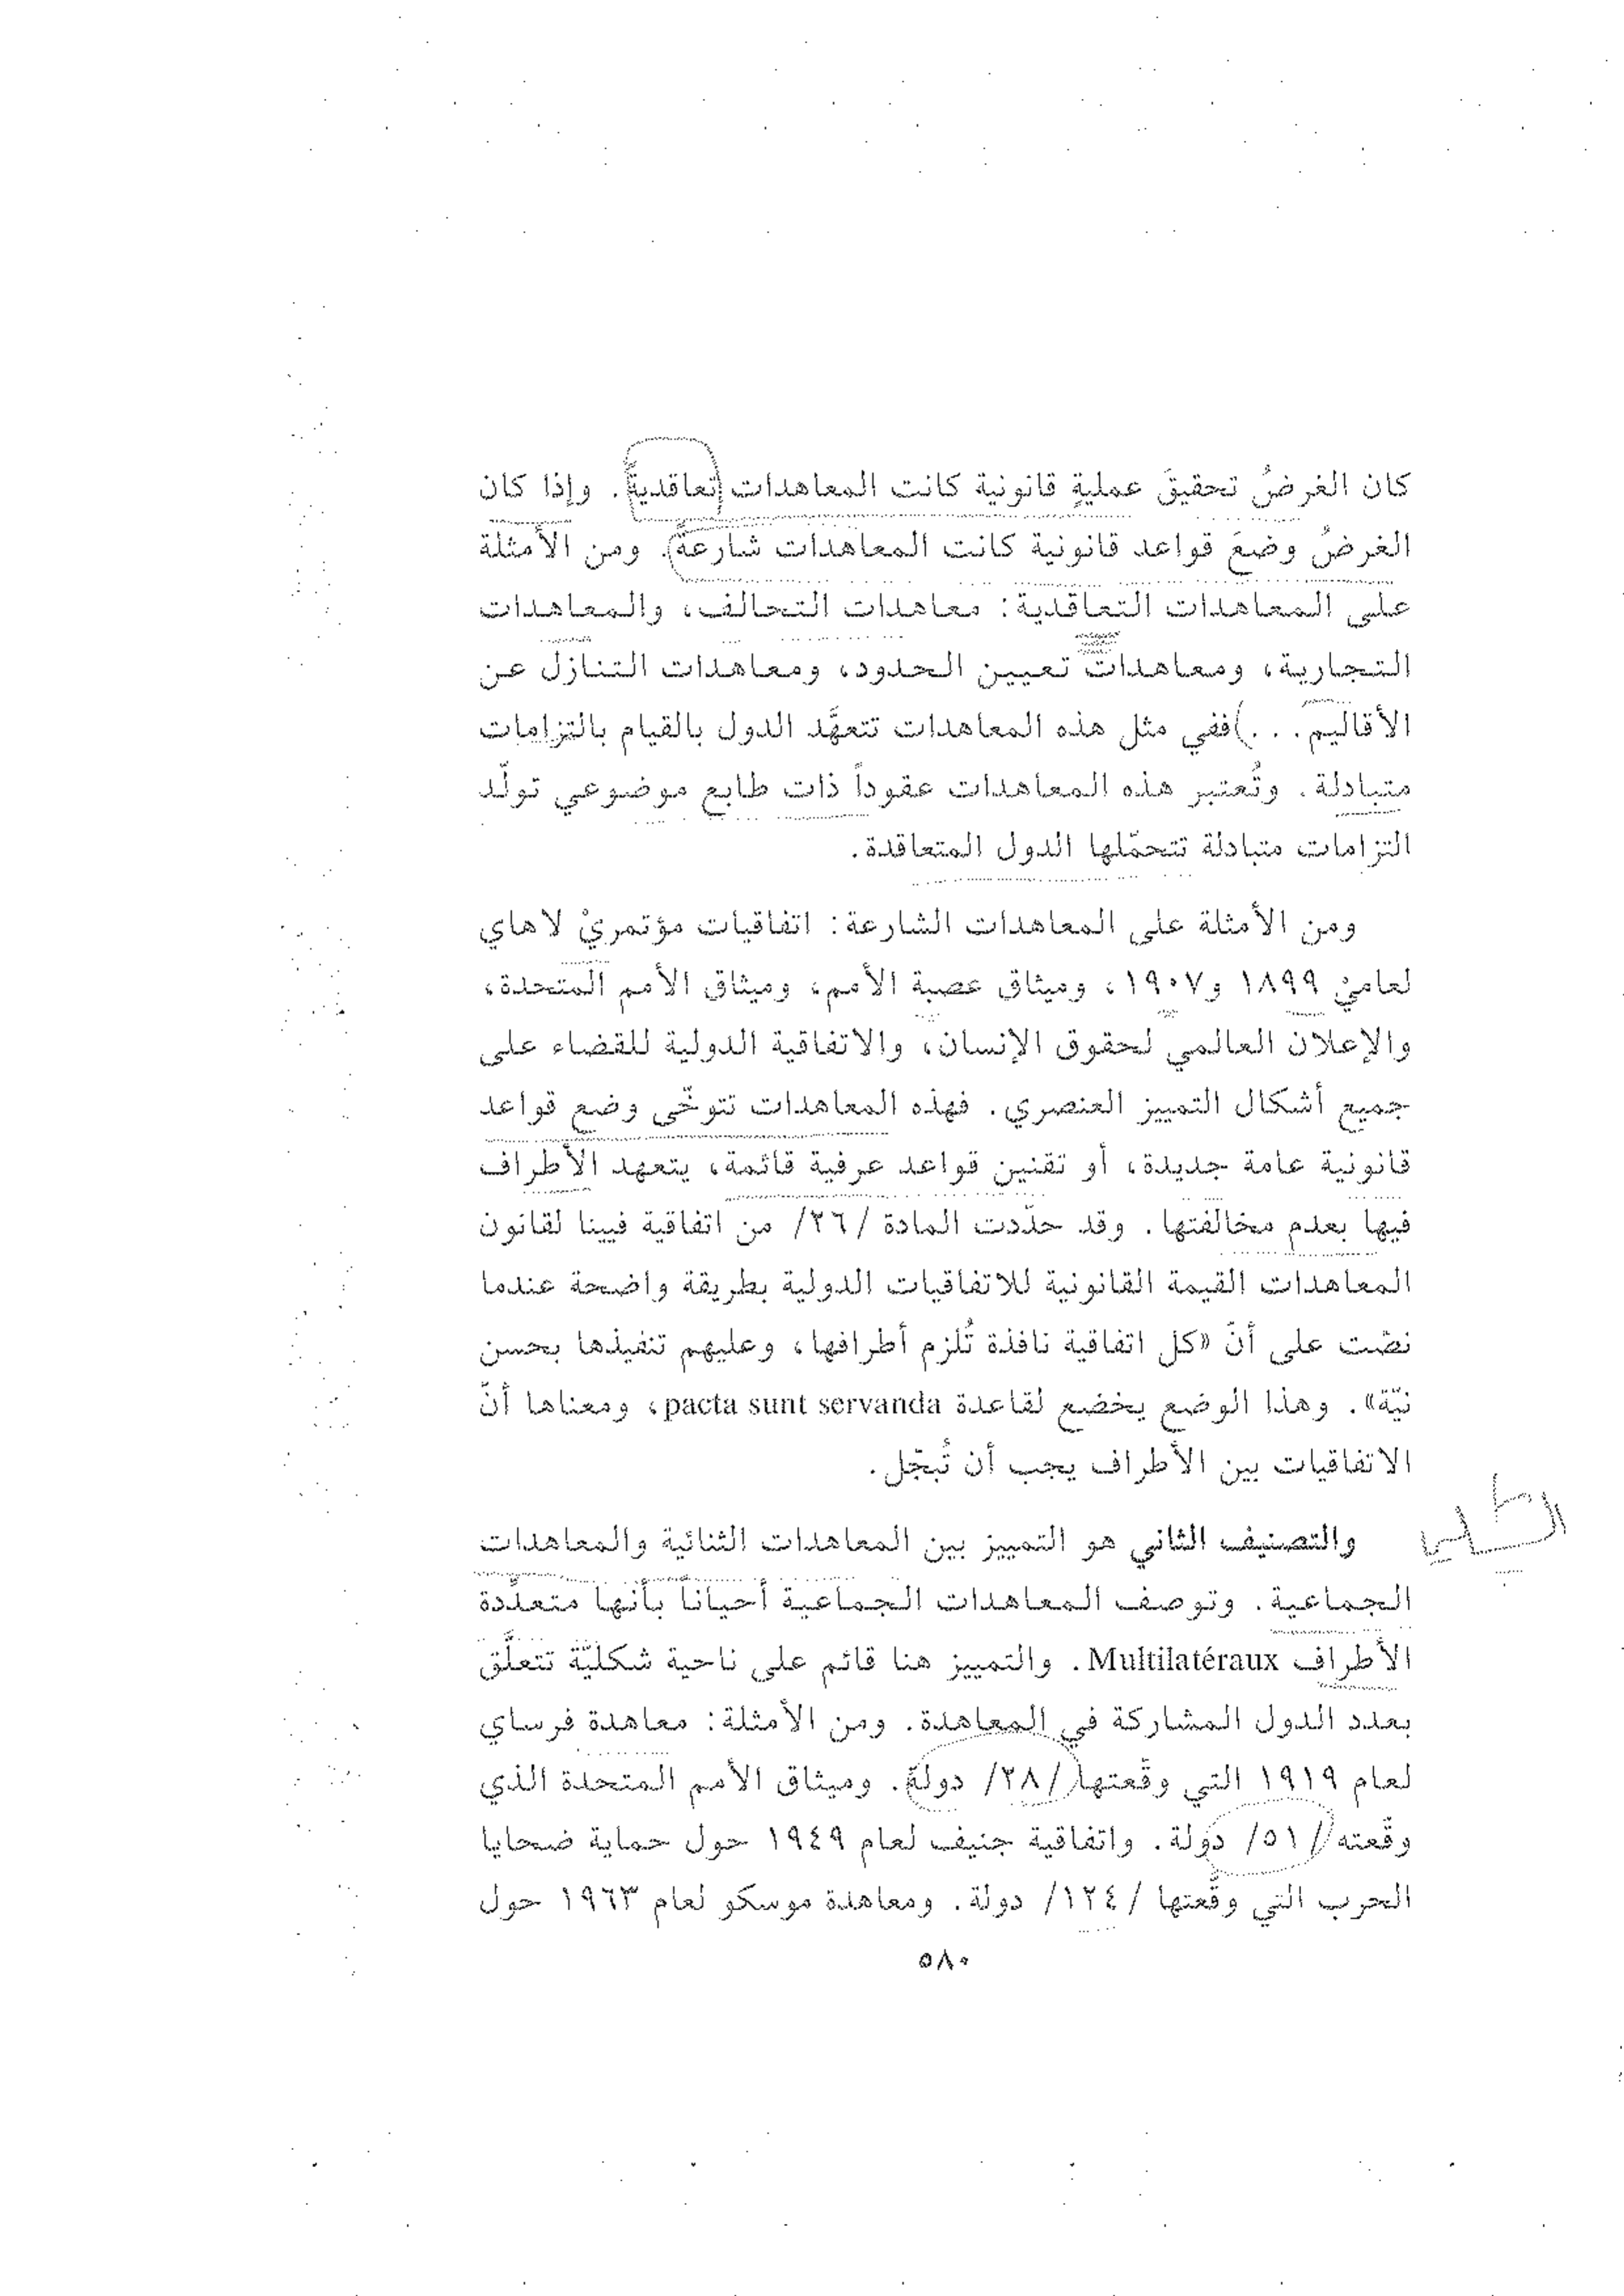 كان الغرضُ تحقيقَ عمليةٍ قانونية كانت المعاهدات تعاقديةً. وإذا كان
الغرضُ وضعَ قواعد قانونية كانت المعاهدات شارعةً. ومن الأمثلة
على المعاهدات التعاقدية: معاهدات التحالف، والمعاهدات
التجارية، ومعاهدات تعيين الحدود، ومعاهدات التنازل عن
الأقاليم...) ففي مثل هذه المعاهدات تتعهَّد الدول بالقيام بالتزامات
متبادلة. وتُعتبر هذه المعاهدات عقوداً ذات طابع موضوعي تولّد
التزامات متبادلة تتحمّلها الدول المتعاقدة.
ومن الأمثلة على المعاهدات الشارعة: اتفاقيات مؤتمريْ لاهاي
لعاميْ ١٨٩٩ و١٩٠٧، وميثاق عصبة الأمم، وميثاق الأمم المتحدة،
والإعلان العالمي لحقوق الإنسان، والاتفاقية الدولية للقضاء على
جميع أشكال التمييز العنصري. فهذه المعاهدات تتوخّى وضع قواعد
قانونية عامة جديدة، أو تقنين قواعد عرفية قائمة، يتعهد الأطراف
فيها بعدم مخالفتها. وقد حدّدت المادة /٢٦/ من اتفاقية فيينا لقانون
المعاهدات القيمة القانونية للاتفاقيات الدولية بطريقة واضحة عندما
نصّت على أنّ «كل اتفاقية نافذة تُلزم أطرافها، وعليهم تنفيذها بحسن
نيّة». وهذا الوضع يخضع لقاعدة pacta sunt servanda، ومعناها أنّ
الاتفاقيات بين الأطراف يجب أن تُبجّل.
والتصنيف الثاني هو التمييز بين المعاهدات الثنائية والمعاهدات
الجماعية. وتوصف المعاهدات الجماعية أحياناً بأنها متعدِّدة
الأطراف Multilatéraux. والتمييز هنا قائم على ناحية شكليّة تتعلَّق
بعدد الدول المشاركة في المعاهدة. ومن الأمثلة: معاهدة فرساي
لعام ١٩١٩ التي وقّعتها /٢٨/ دولة. وميثاق الأمم المتحدة الذي
وقّعته /٥١/ دولة. واتفاقية جنيف لعام ١٩٤٩ حول حماية ضحايا
الحرب التي وقّعتها /١٢٤/ دولة. ومعاهدة موسكو لعام ١٩٦٣ حول
٥٨٠